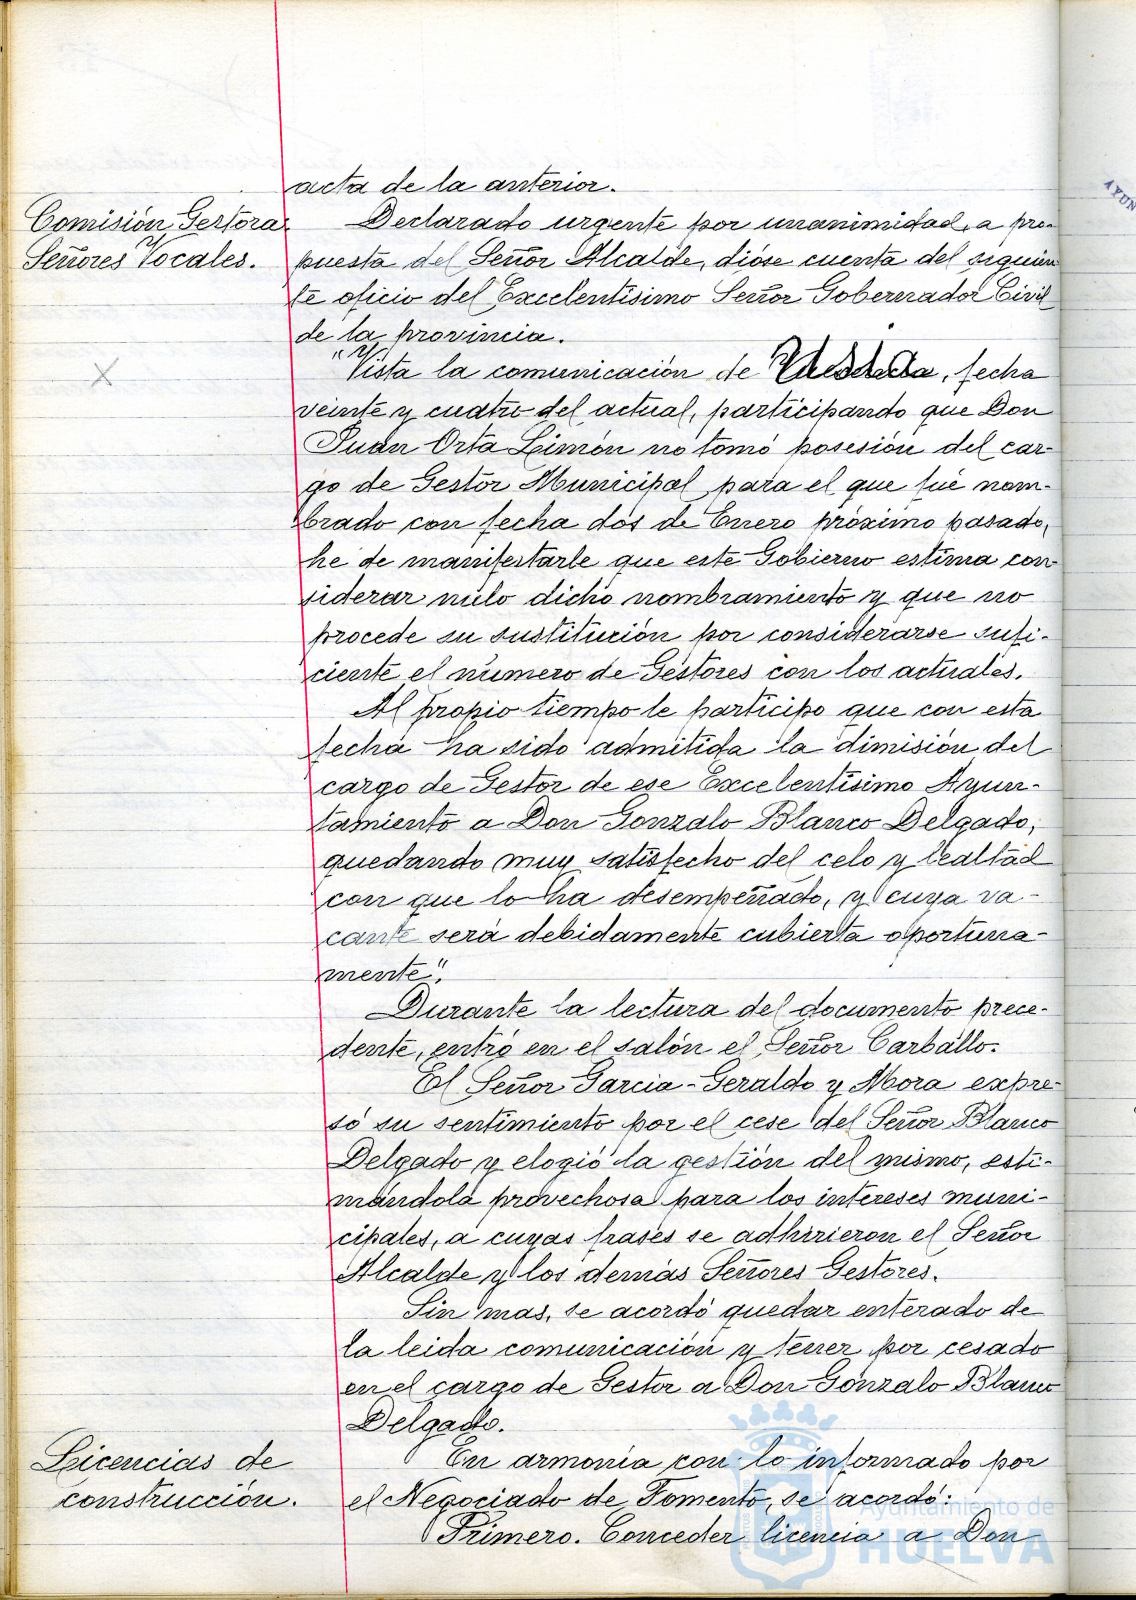 acta de la anterior.
Comisión Gestora.
Señores Vocales.
Declarado urgente por unanimidad, a pro-
puesta del Señor Alcalde, dióse cuenta del siguien
te oficio del Excelentísimo Señor Gobernador Civil
de la provincia.
"Vista la comunicación de , fecha
veinte y cuatro del actual, participando que Don
Juan Orta Limón no tomó posesión del car-
go de Gestor Municipal para el que fué nom-
brado con fecha dos de Enero próximo pasado,
he de manifestarle que este Gobierno estima con
siderar nulo dicho nombramiento y que no
procede su sustitución por considerarse sufi-
ciente el número de Gestores con los actuales.
Al propio tiempo le participo que con esta
fecha ha sido admitida la dimisión del
cargo de Gestor de ese Excelentísimo Ayun-
tamiento a Don Gonzalo Blanco Delgado,
quedando muy satisfecho del celo y lealtad
con que lo ha desempeñado, y cuya va-
cante será debidamente cubierta oportuna-
mente".
Durante la lectura del documento prece-
dente, entró en el salón el Señor Carballo.
El Señor Garcia-Geraldo y Mora expre-
só su sentimiento por el cese del Señor Blanco
Delgado y elogió la gestión del mismo, esti-
mándola provechosa para los intereses muni-
cipales, a cuyas frases se adhirieron el Señor
Alcalde y los demás Señores Gestores.
Sin mas, se acordó quedar enterado de
la leida comunicación y tener por cesado
en el cargo de Gestor a Don Gonzalo Blanco
Delgado.
Licencias de
construcción.
En armonía con lo informado por
el Negociado de Fomento, se acordó:
Primero. Conceder licencia a Don
Ayuntamiento de
HUELVA